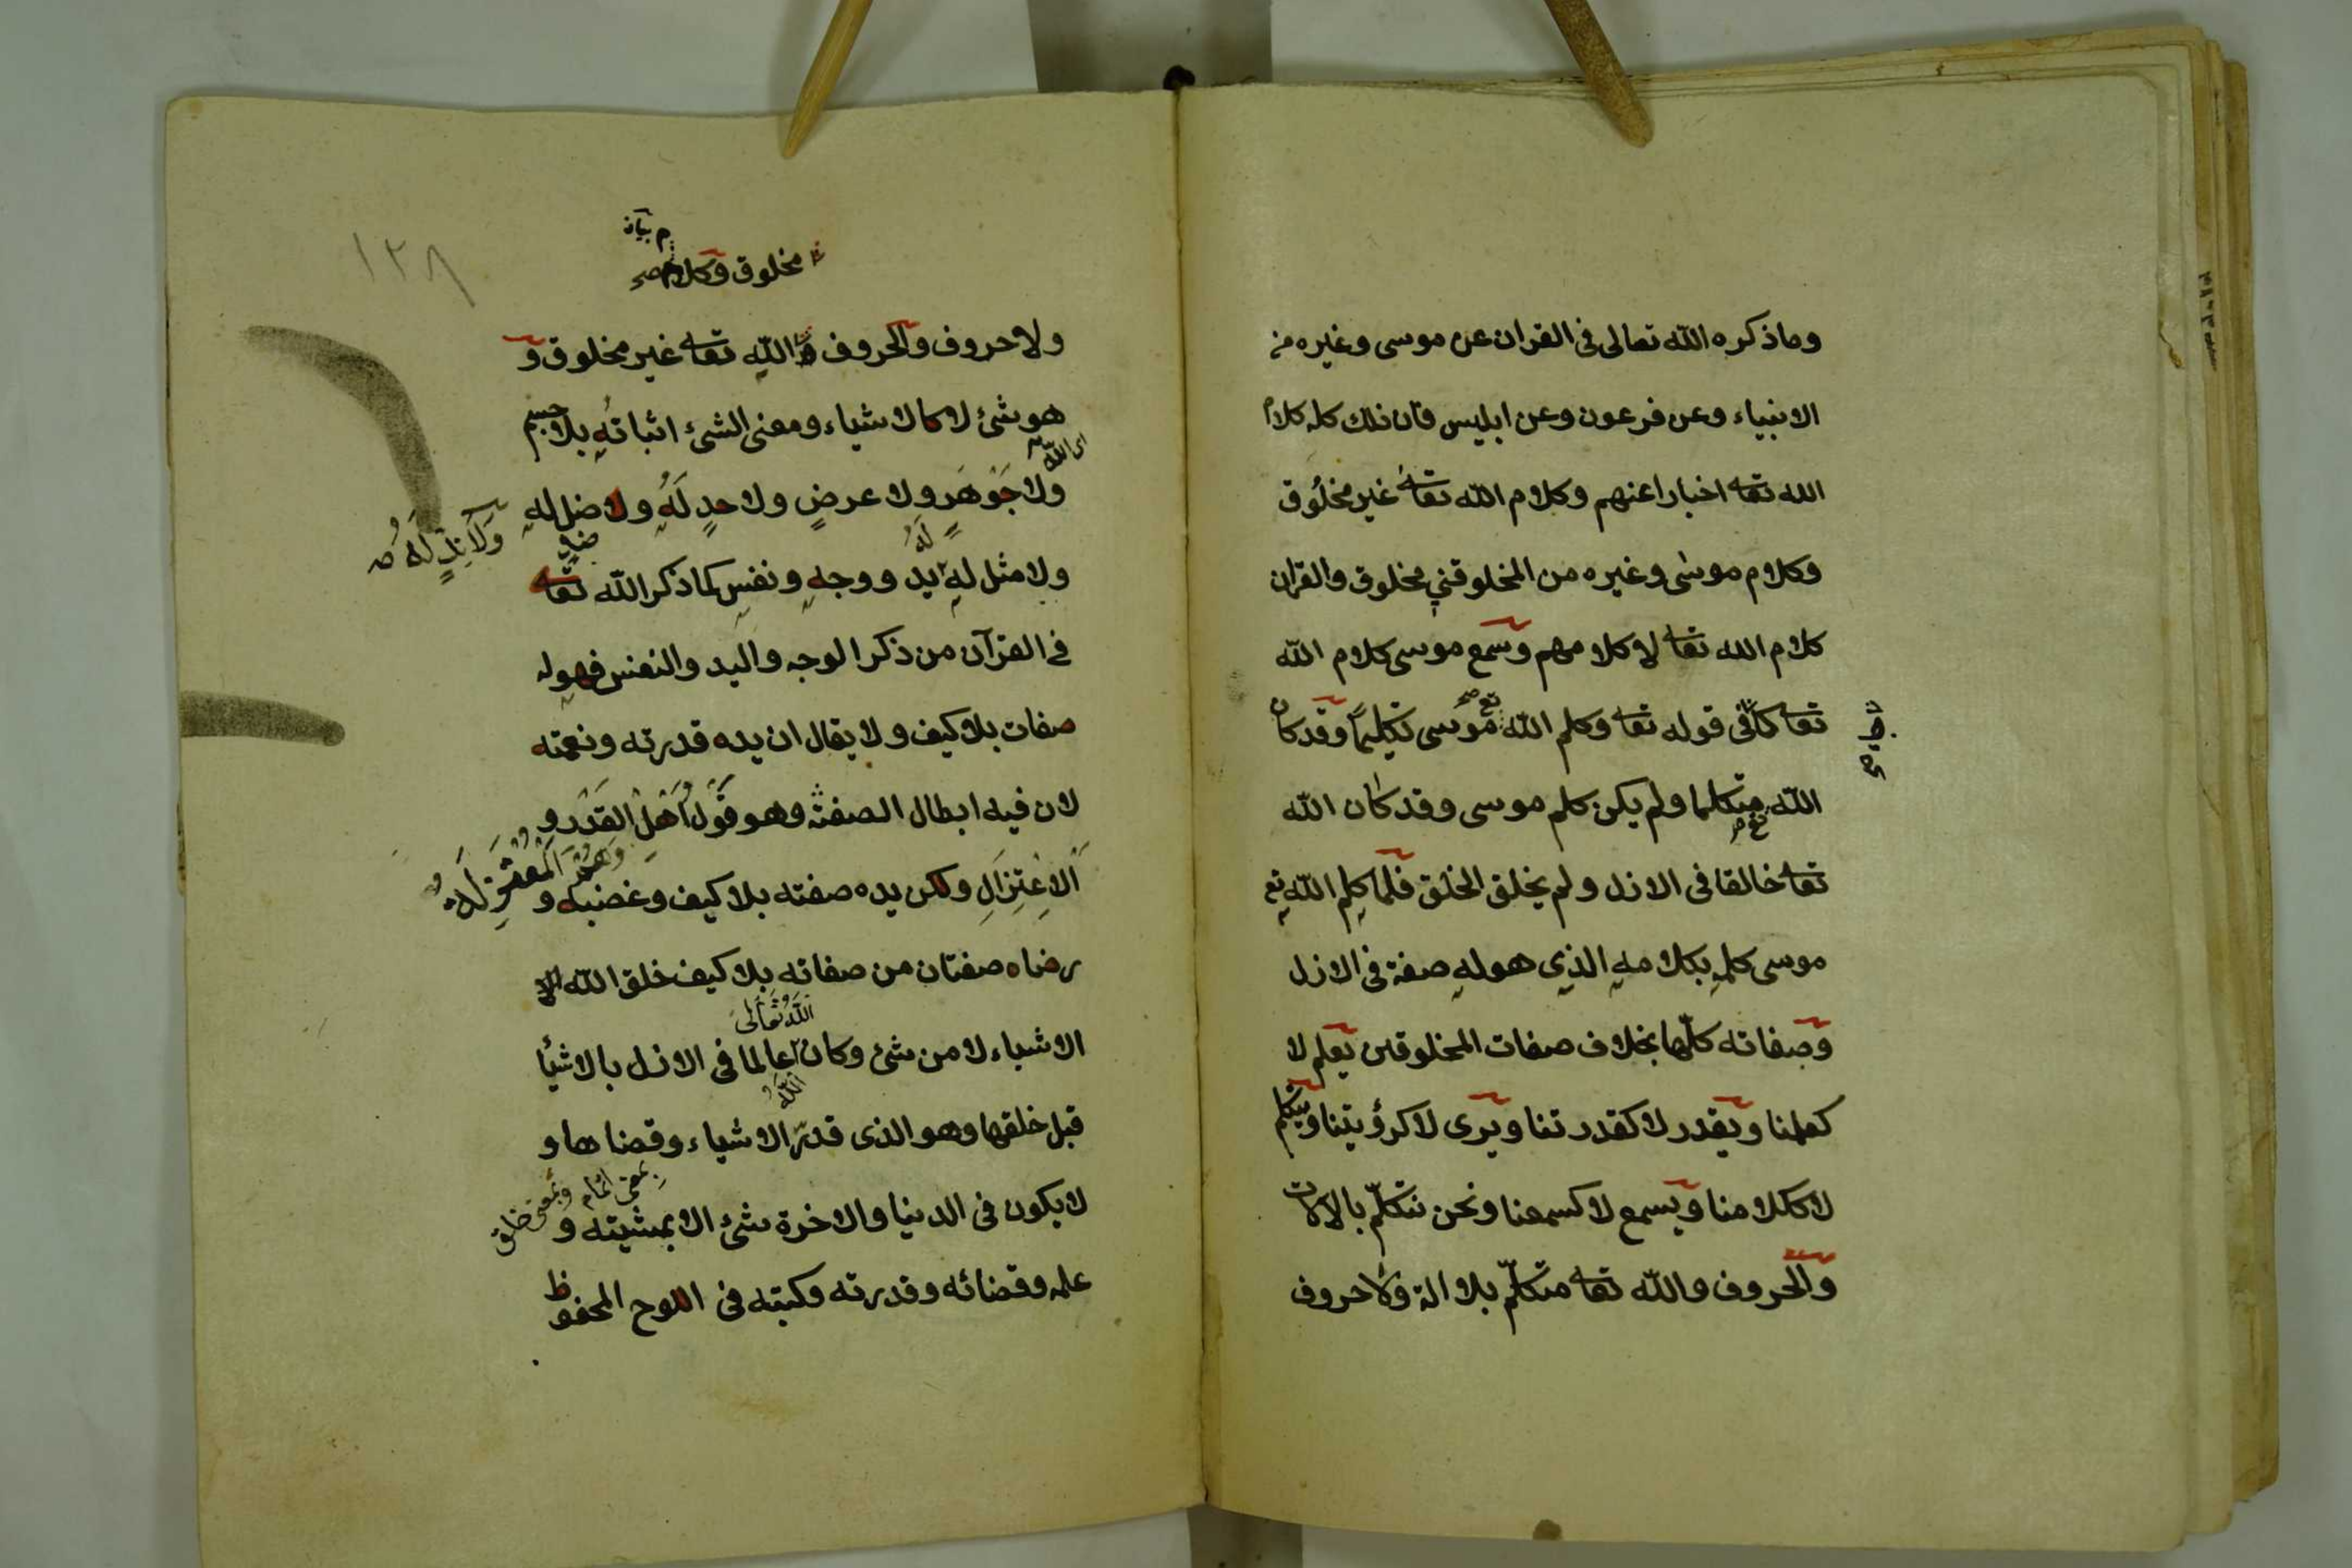 وما ذكره الله تعالى فى القران عن موسى وغيره من
الانبياء وعن فرعون وعن ابليس فان ذلك كله كلام
الله تعا اخبارا عنهم وكلام الله تعا غير مخلوق
وكلام موسى وغيره من المخلوقني مخلوق والقران
كلام الله تعا لا كلامهم وسمع موسى كلام الله
تعا كما فى قوله تعا وكلم الله موسى تكليما وقد كان
الله متكلما ولم يكن كلم موسى وقد كان الله
تعا خالقا فى الازل ولم يخلق الخلق فلما كلم الله تع
موسى كلمه بكلامه الذى هو له صفة فى الازل
وصفاته كلها بخلاف صفات المخلوقين يعلم لا
كعلمنا ويقدر لا كقدرتنا ويرى لا كرؤيتنا ويتكلم
لا ككلامنا ويسمع لا كسمعنا ونحن نتكلم بالالات
والحروف والله تعا متكلم بلا الة ولا حروف
١٢٨
مخلوق وكلام صح
ولا حروف والحروف الله تعا غير مخلوق و
هو شئ لا كالاشياء ومعنى الشئ اثباته بلا جسم
اى الله
ولا جَوْهَرٍ ولا عرضٍ ولا حدٍ لَهُ ولا ضل له
وَلَا نِدٍّ لَهُ صح
ضد
لَهُ
ولا مثل له يد ووجه ونفس كما ذكر الله تعا
فى القرآن من ذكر الوجه واليد والنفس فهو له
صفات بلا كيف ولا يقال ان يده قدرته ونعمته
لان فيه ابطال الصفة وهو قَوْلُ اَهْلِ القَدَرِ و
وَهُمُ الْمُعْتَزِلَةُ
اَلاِعْتِزَالِ ولكن يده صفته بلا كيف وغضبه و
رضاه صفتان من صفاته بلا كيف خلق الله
اللَّهُ تَعَالَى
الاشياء لا من شئ وكان عالما فى الازل بالاشيأ
اللَّهُ
قبل خلقها وهو الذى قدر الاشياء وقضاها و
بمعنى اتمام وبمعنى خلق
لا يكون فى الدنيا والاخرة شئ الا بمشيته و
علمه وقضائه وقدرته وكتبه فى اللوح المحفوظ